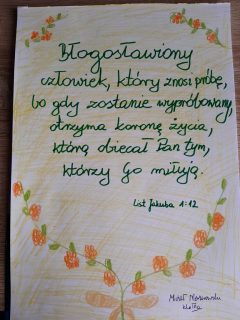 Błogosławiony
człowiek, który znosi próbę,
bo gdy zostanie wypróbowany,
otrzyma koronę życia,
którą obiecał Pan tym,
którzy Go miłują.
List Jakuba 1:12